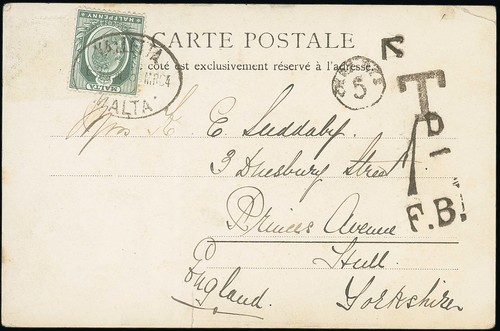 MALTA
HALFPENNY
VALLETTA
MR 04
MALTA
CARTE POSTALE
Ce côté est exclusivement réservé à l'adresse.
5
T
D
1
F.B.
Mrs K. E. Suddaby.
3 Duesbury Street
Princes Avenue
Hull.
England. Yorkshire